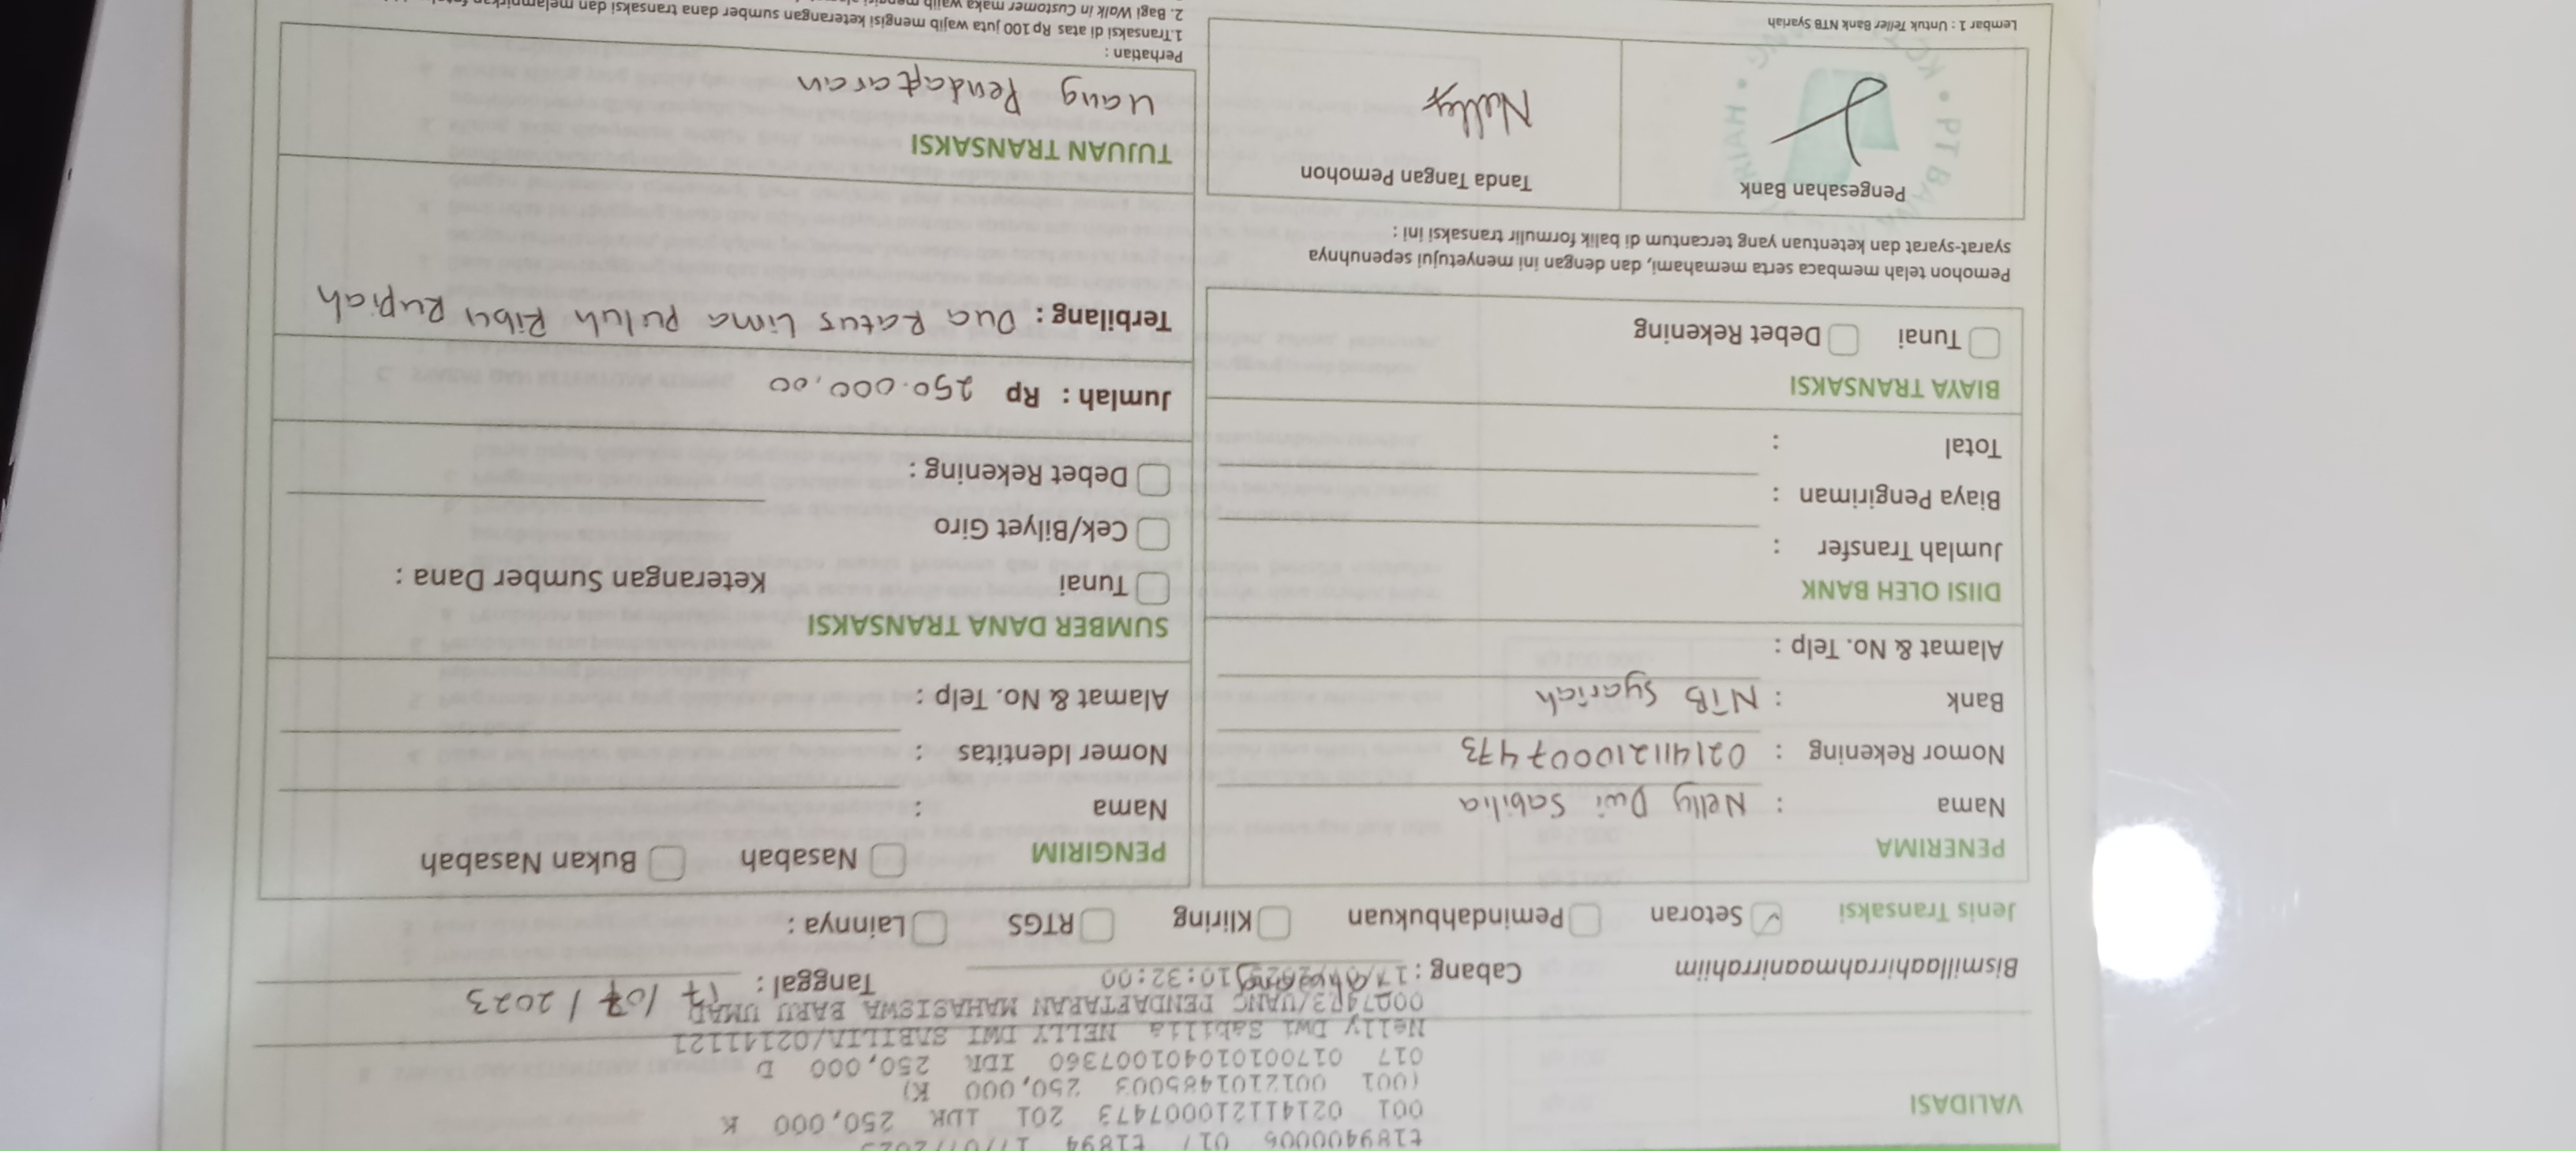 VALIDASI
t189400006 017 t1894 17/07/2023
001 021411210007473 201 IDR 250,000 K
(001 0012101485003 250,000 K)
017 017001010401007360 IDR 250,000 D
Nelly Dwi Sabilia NELLY DWI SABILIA/02141121
0007473/UANG PENDAFTARAN MAHASISWA BARU UMAD
Bismillaahirrahmaanirrahiim Cabang : 17/07/2023 10:32:00 Tanggal : 17 / 07 / 2023
Jenis Transaksi Setoran Pemindahbukuan Kliring RTGS Lainnya :
PENERIMA
Nama : Nelly Dwi Sabilia
Nomor Rekening : 021411210007473
Bank : NTB Syariah
Alamat & No. Telp :
DIISI OLEH BANK
Jumlah Transfer :
Biaya Pengiriman :
Total :
BIAYA TRANSAKSI
Tunai Debet Rekening
Pemohon telah membaca serta memahami, dan dengan ini menyetujui sepenuhnya
syarat-syarat dan ketentuan yang tercantum di balik formulir transaksi ini :
Pengesahan Bank Tanda Tangan Pemohon
Nelly
Lembar 1 : Untuk Teller Bank NTB Syariah
PENGIRIM Nasabah Bukan Nasabah
Nama :
Nomer Identitas :
Alamat & No. Telp :
SUMBER DANA TRANSAKSI
Tunai Keterangan Sumber Dana :
Cek/Bilyet Giro
Debet Rekening :
Jumlah : Rp 250.000,00
Terbilang : Dua Ratus Lima Puluh Ribu Rupiah
TUJUAN TRANSAKSI
Uang Pendaftaran
Perhatian :
1.Transaksi di atas Rp 100 juta wajib mengisi keterangan sumber dana transaksi dan
2. Bagi Walk in Customer maka wajib